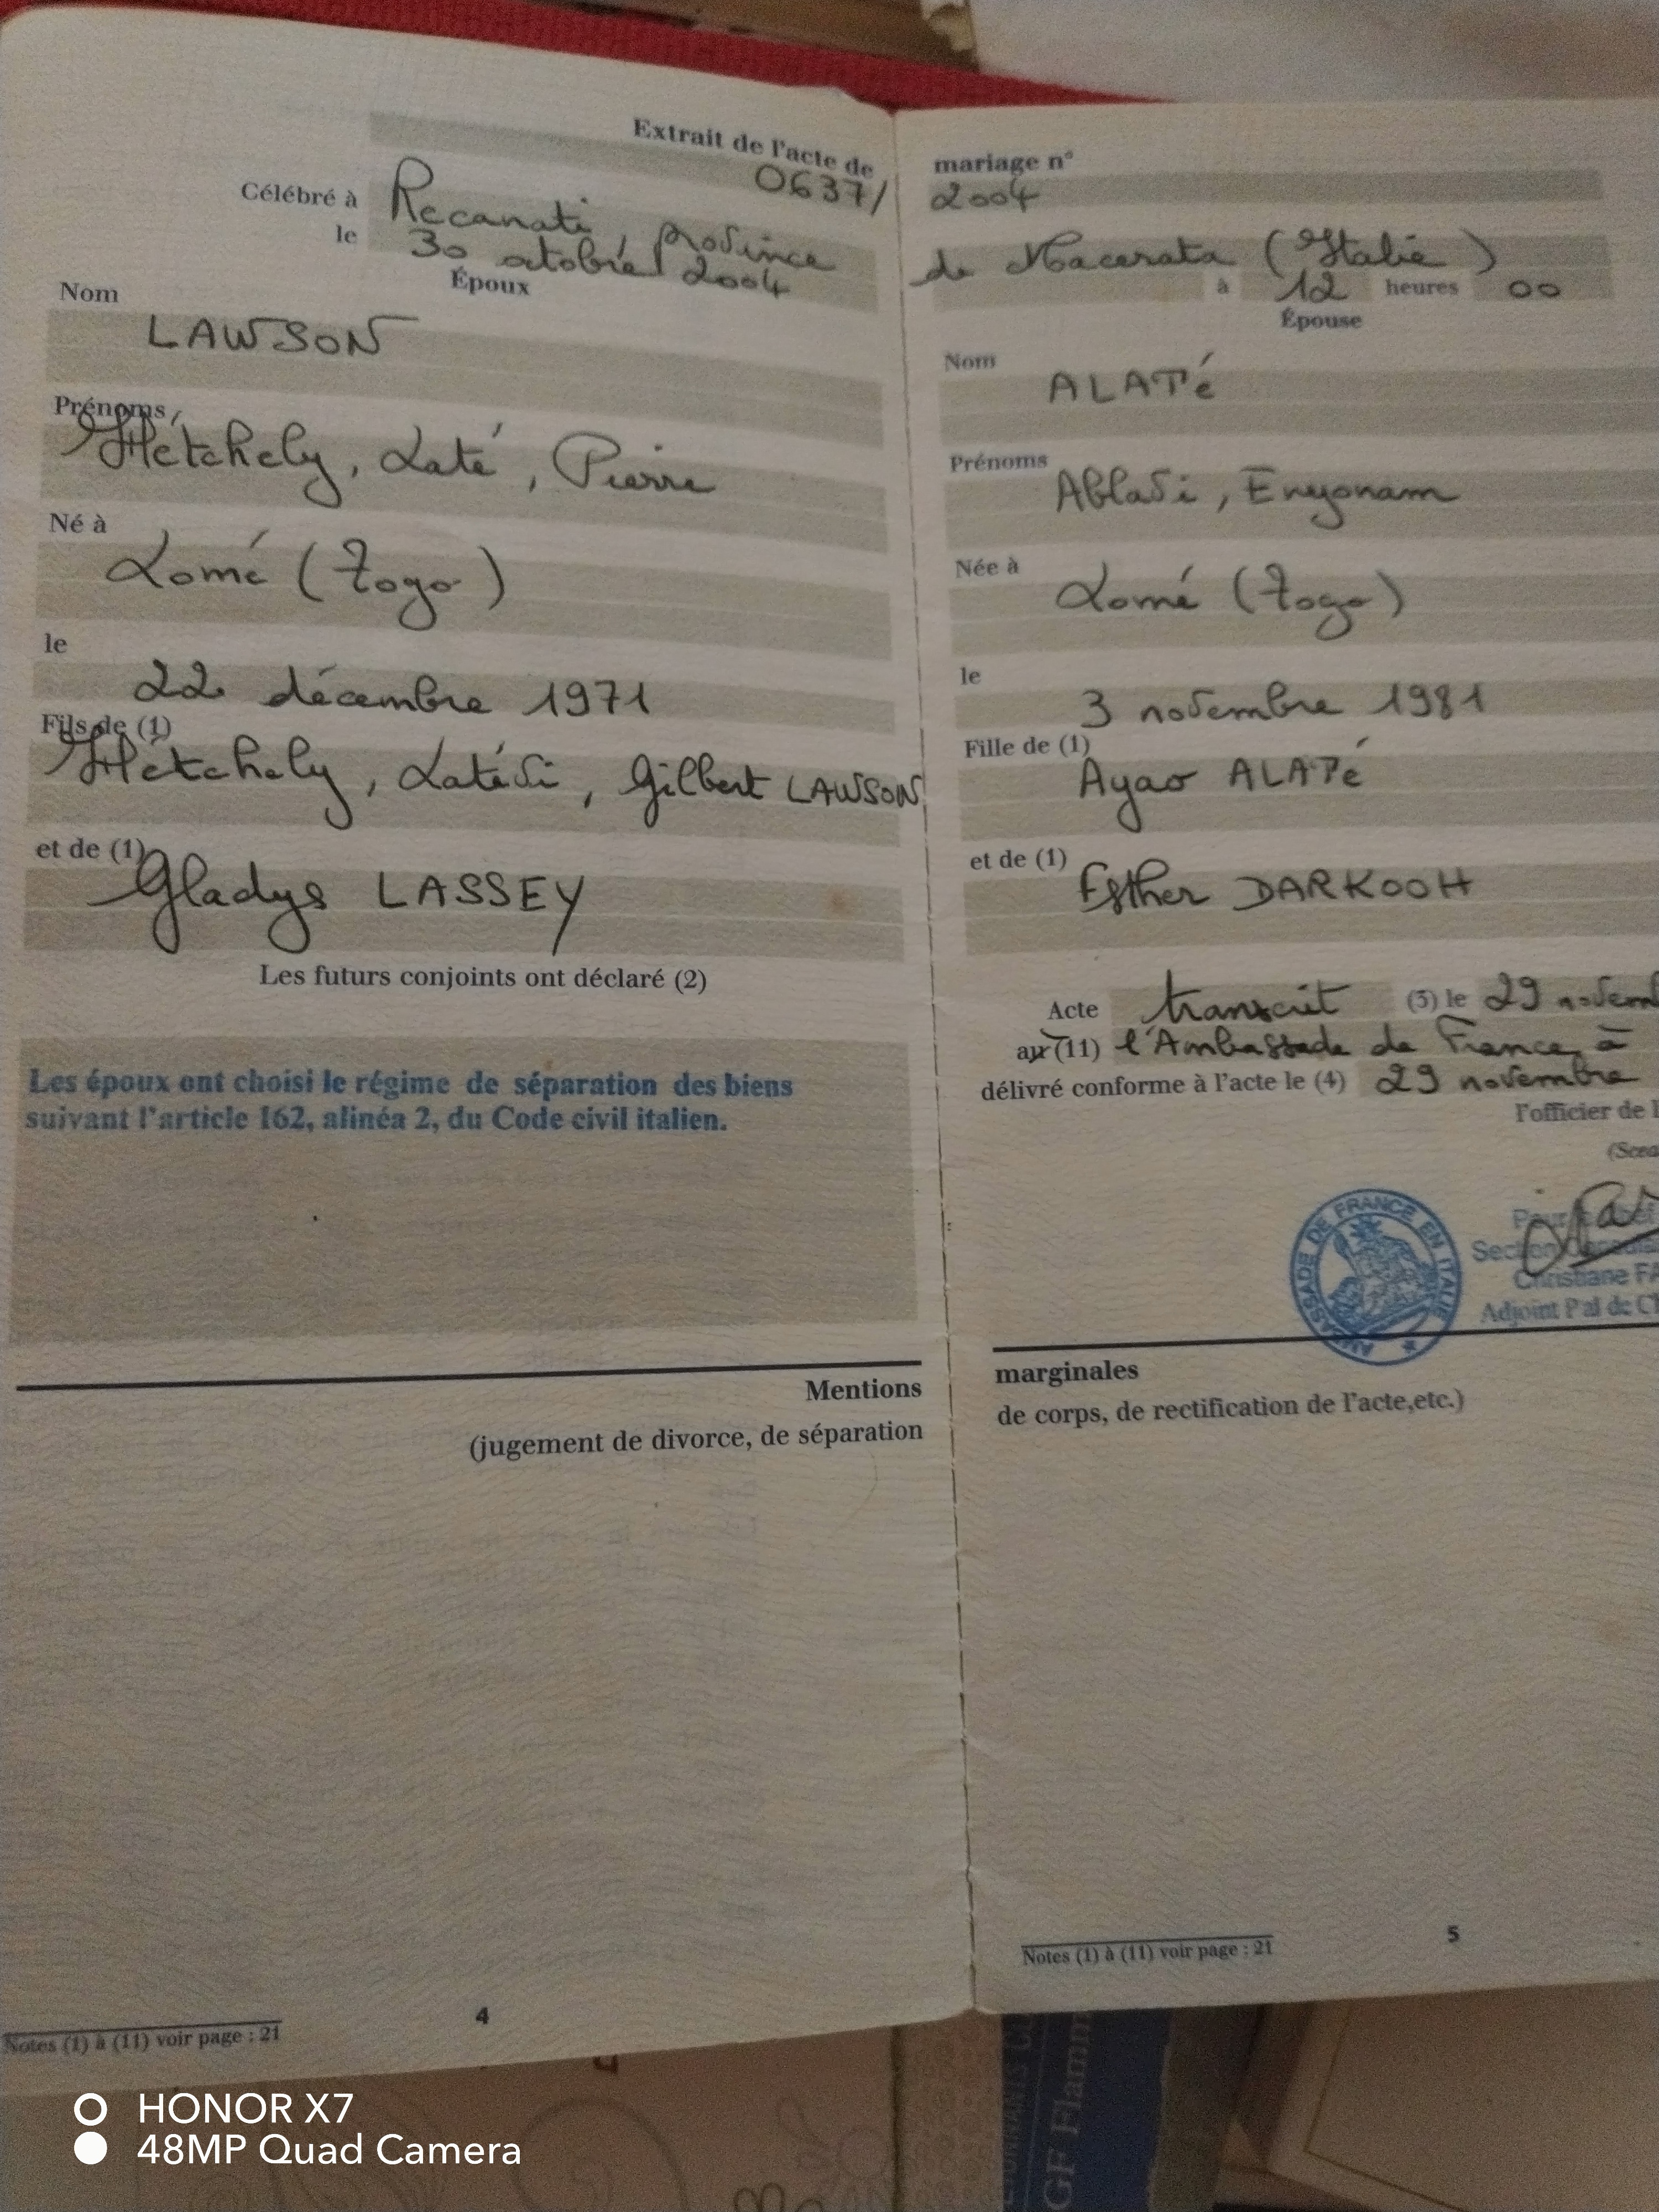 Extrait de l'acte de
0637/
Célébré à Recanati, province
le 30 octobre 2004
Époux
Nom
LAWSON
Prénoms
Hétchely, Laté, Pierre
Né à
Lomé (Togo)
le
22 décembre 1971
Fils de (1)
Hétchely, Latévi, Gilbert LAWSON
et de (1)
Gladys LASSEY
Les futurs conjoints ont déclaré (2)
Les époux ont choisi le régime de séparation des biens
suivant l'article 162, alinéa 2, du Code civil italien.
Mentions
(jugement de divorce, de séparation
4
Notes (1) à (11) voir page : 21
mariage n°
2004
de Macerata (Italie)
à 12 heures 00
Épouse
Nom
ALATé
Prénoms
Ablavi, Enyonam
Née à
Lomé (Togo)
le
3 novembre 1981
Fille de (1)
Ayao ALATé
et de (1)
Esther DARKOOH
Acte transcrit (3) le 29 novem
au (11) l'Ambassade de France à
délivré conforme à l'acte le (4) 29 novembre
l'officier de l
(Scea
AMBASSADE DE FRANCE EN ITALIE
Christiane FA
Adjoint Pal de Ch
marginales
de corps, de rectification de l'acte,etc.)
5
Notes (1) à (11) voir page : 21
GF Flamm
HONOR X7
48MP Quad Camera